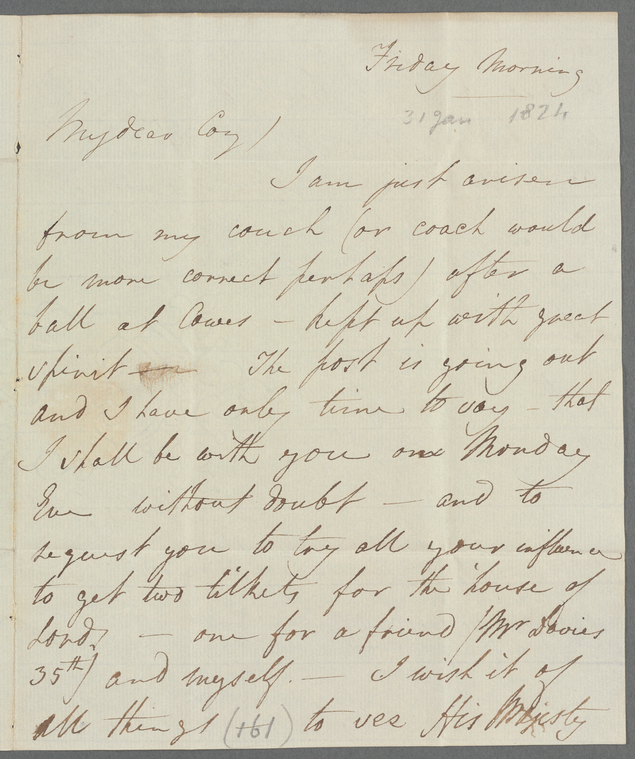 Friday Morning
31 Jan 1824
My dear Coz)
I am just arisen
from my couch (or coach would
be more correct perhaps) after a
ball at Cowes – kept up with great
spirit – The post is going out
and I have only time to say – that
I shall be with you on Monday
Eve without doubt – and to
request you to try all your influence
to get two tickets for the house of
Lords – one for a friend (Mr Davies
35th) and myself. – I wish it of
all things (161) to see His Majesty